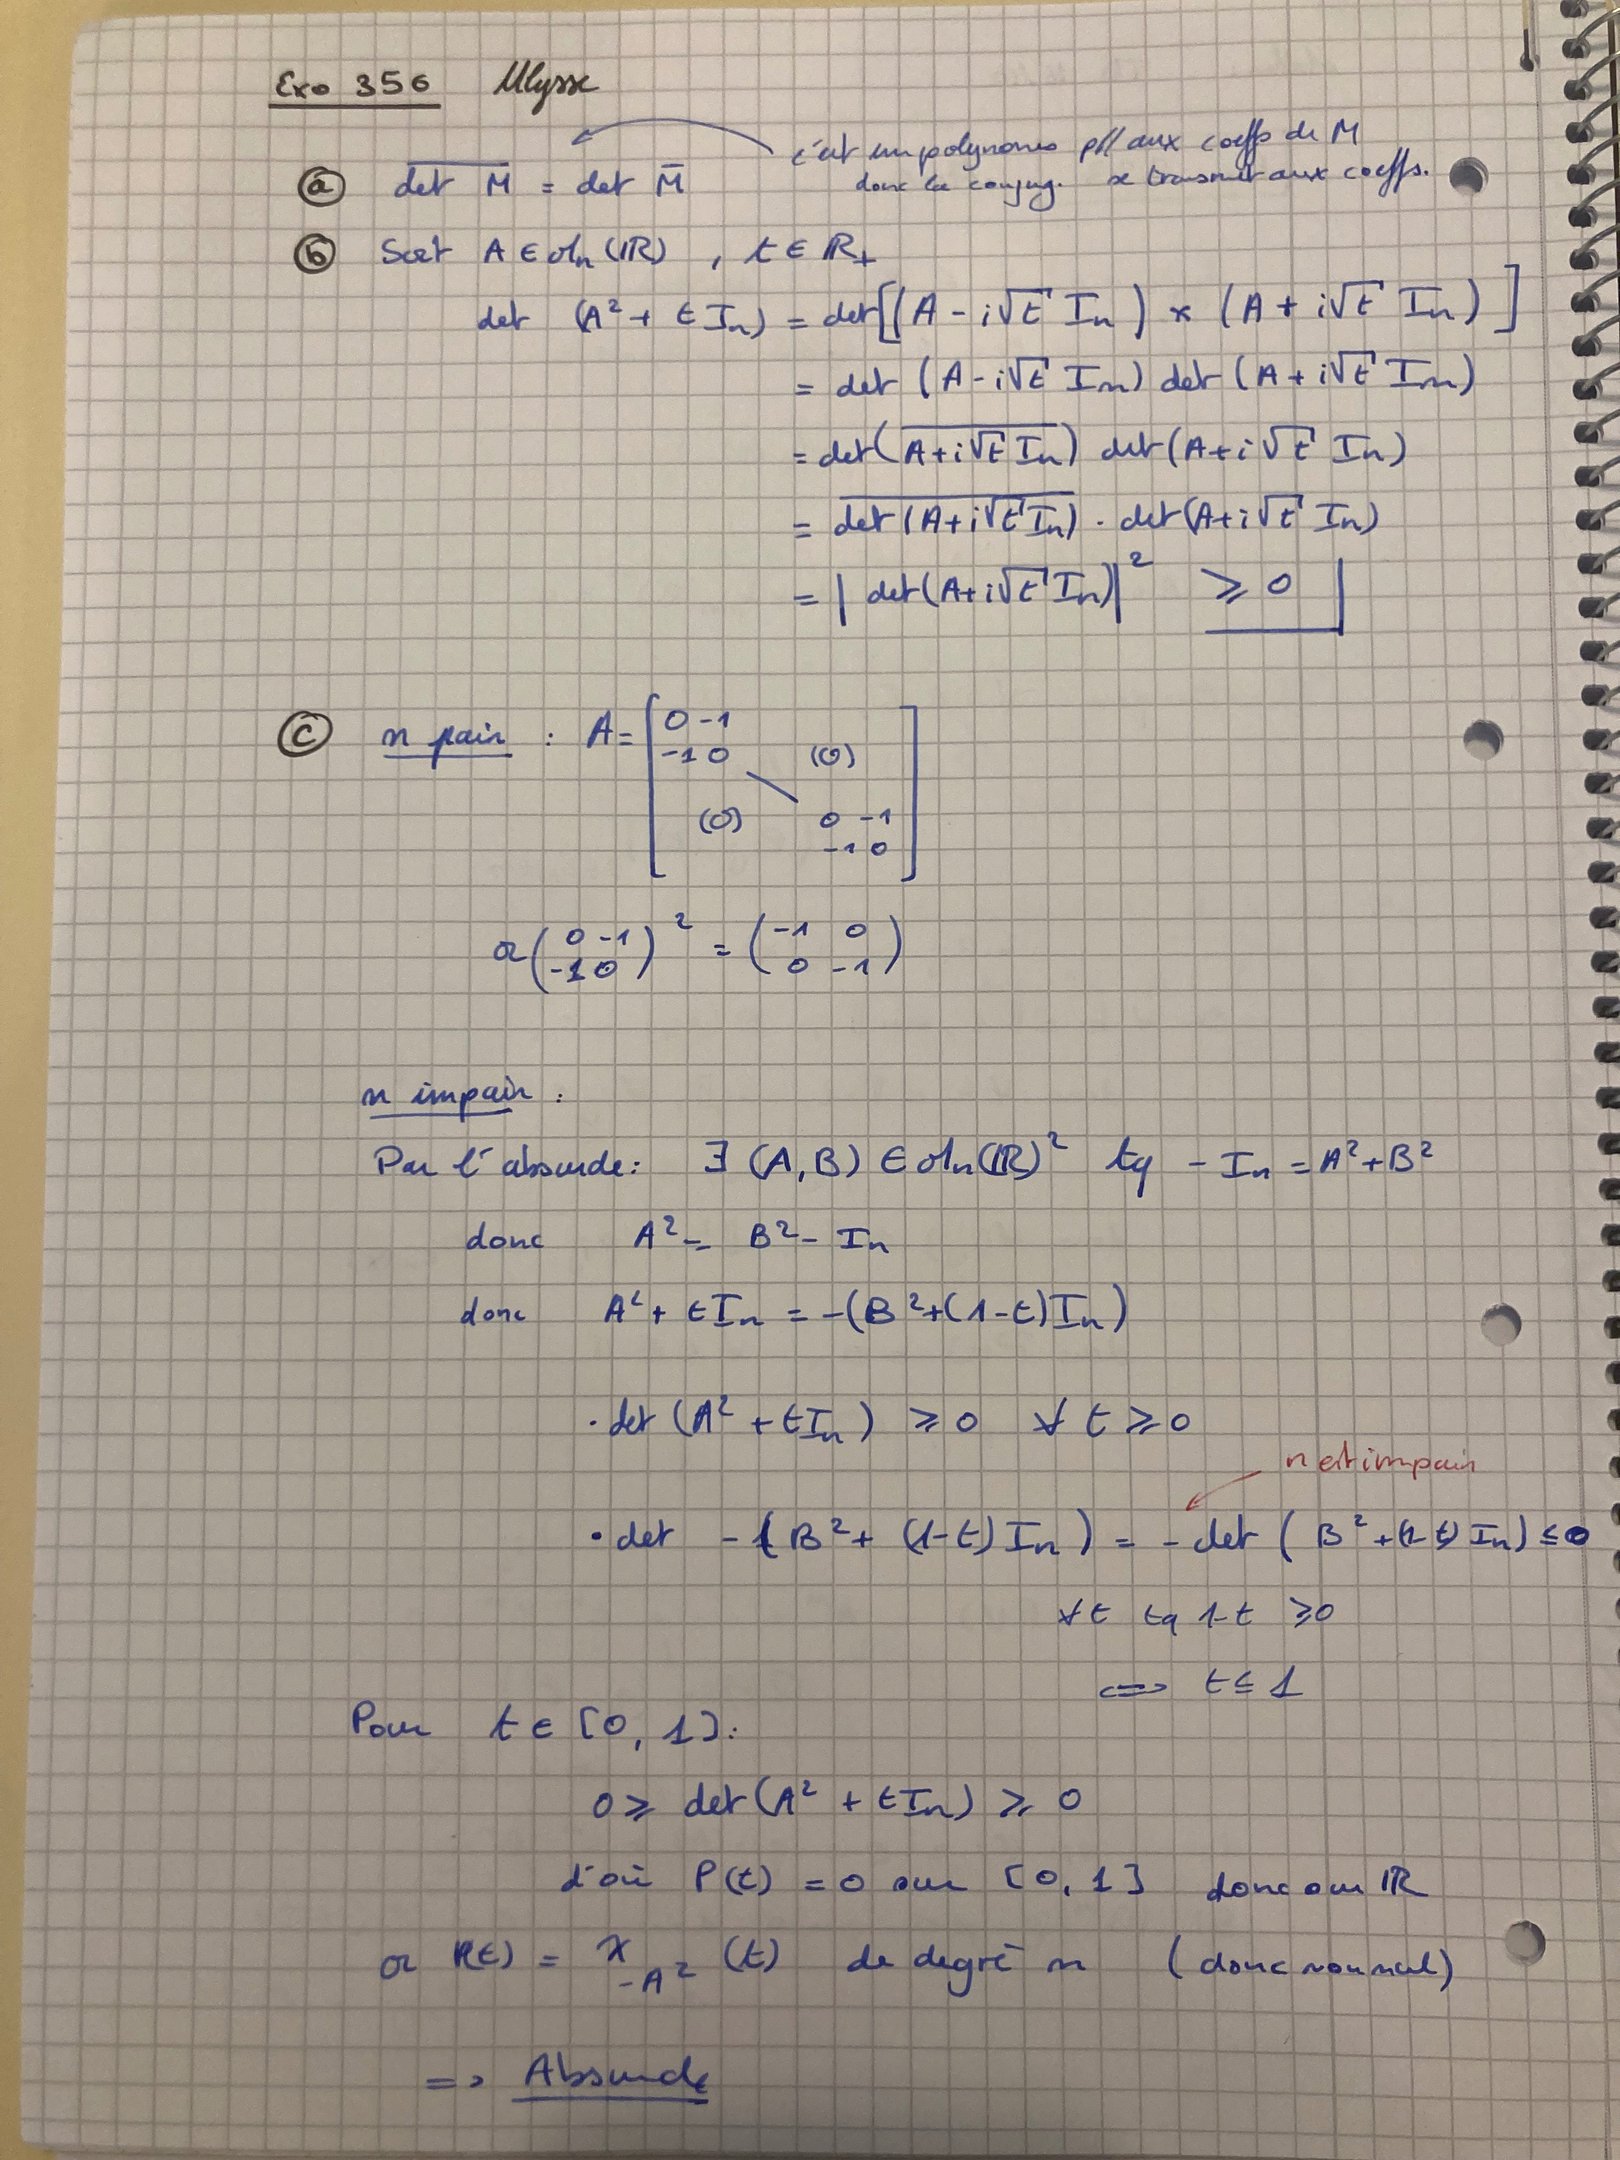 Exo 356 Ulysse
c'est un polynome p/r aux coeffs de M
donc la conjug. se transmet aux coeffs.
(a) \overline{det M} = det \overline{M}
(b) Soit A ∈ ℳn(ℝ) , t ∈ ℝ+
det (A² + t In) = det[(A - i√t In) × (A + i√t In)]
= det (A - i√t In) det (A + i√t In)
= det(\overline{A + i√t In}) det(A + i√t In)
= \overline{det(A + i√t In)} · det(A + i√t In)
= |det(A + i√t In)|² ≥ 0
(c) n pair : A = [ 0 -1
-1 0 (0)
(0) 0 -1
-1 0 ]
or ( 0 -1 ; -1 0 )² = ( -1 0 ; 0 -1 )
n impair :
Par l'absurde : ∃ (A, B) ∈ ℳn(ℝ)² tq - In = A² + B²
donc A² = - B² - In
donc A² + t In = -(B² + (1-t) In)
· det (A² + t In) ≥ 0 ∀ t ≥ 0
n est impair
· det -( B² + (1-t) In ) = - det ( B² + (1-t) In ) ≤ 0
∀ t tq 1-t ≥ 0
⟺ t ≤ 1
Pour t ∈ [0, 1] :
0 ≥ det (A² + t In) ≥ 0
d'où P(t) = 0 sur [0, 1] donc sur ℝ
or P(t) = χ_{-A²} (t) de degré n (donc non nul)
=> Absurde